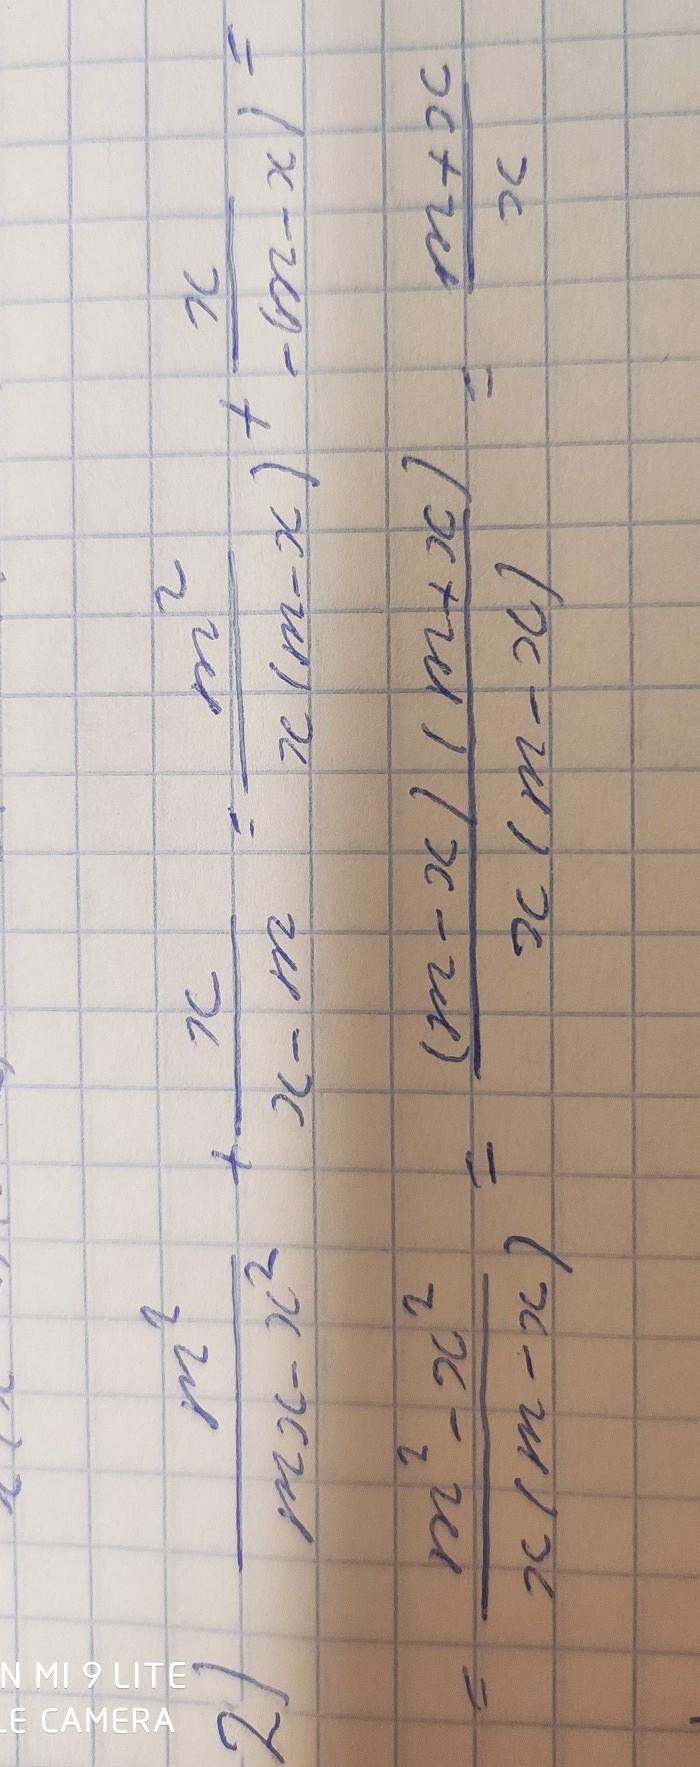 2) m²/(mx-x²) + x/(x-m) = m²/(x(m-x)) + x/(-(m-x)) =
= (m²-x²)/(x(m-x)) = ((m-x)(m+x))/(x(m-x)) = (m+x)/x
N MI 9 LITE
LE CAMERA